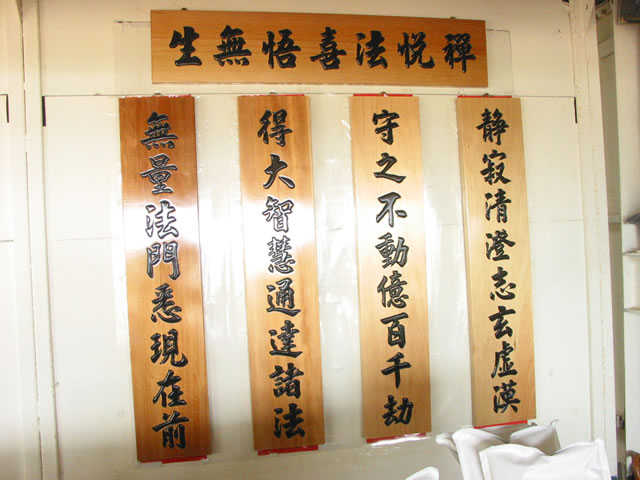 禪悅法喜悟無生
静寂清澄志玄虛漠
守之不動億百千劫
得大智慧通達諸法
無量法門悉現在前